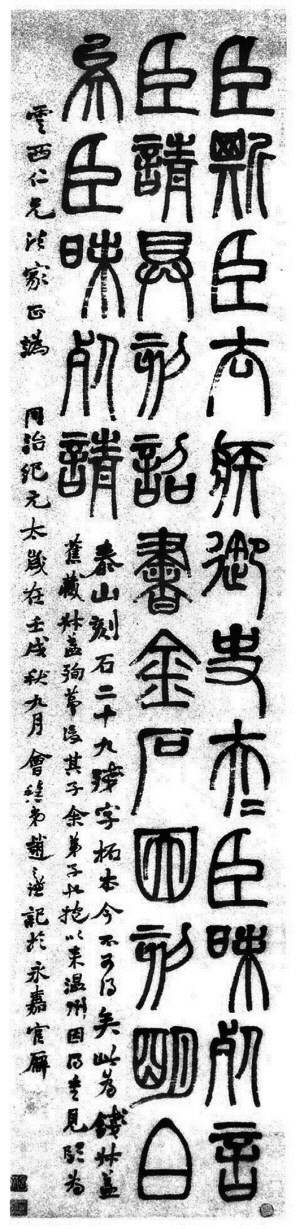 臣斯臣去疾御史夫二臣昧死言
臣請具刻詔書金石因刻明白
矣臣昧死請
泰山刻石二十九殘字柘本今不可得矣此為錢叔蓋
舊藏叔蓋殉節後其子余弟子以來溫州因得重見臨為
雲西仁兄法家正譌 同治紀元太歲在壬戌秋九月會稽弟趙之謙記於永嘉官廨